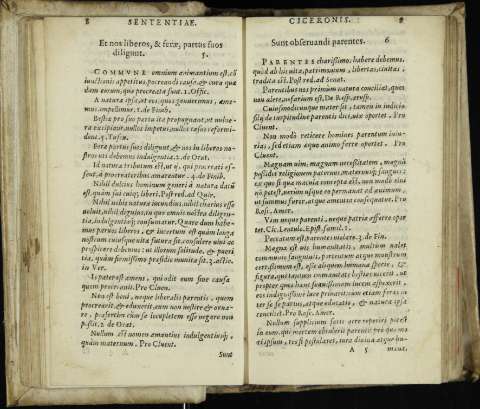 8 SENTENTIAE.
Et nos liberos, & feræ, partus suos
diligunt. 5.
COMMVNE omnium animantium est,
iunctionis appetitus, procreandi causa, & cura quæ
dam eorum, quæ procreata sunt. 1. Offic.
A natura ipsa, vt eos, quos genuerimus, ame-
mus, impellimur. 3. de Finib.
Bestiæ pro suo partu ita propugnant, vt vulne-
ra excipiant, nullos impetus, nullos ictus reformi-
dent. 5. Tuscu.
Feræ partus suos diligunt, & nos in liberos no-
stros indulgentia. 2. de Orat.
Id natura tributum est, ut ij, qui procreati es-
sent, à procreatoribus amarentur. 4. de Finib.
Nihil dulcius hominum generi à natura datū
est, quàm sui cuiq; liberi. Post red. ad Quir.
Nihil nobis natura iucundius, nihil charius esse
voluit, nihil dignius, in quo omnis nostra diligen-
tia, indulgentiaq́; consumatur. Quare dum habe-
mus paruos liberos, & incertum est quàm longa
nostrum cuiusque vita futura sit, consulere viui ac
prospicere debemus: ut illorum solitudo, & pueri-
tia, quàm firmissimo præsidio munita sit. 3. actio.
in Ver.
Is pater est amens, qui odit eum sine causa
quem procreauit. Pro Cluen.
Non est boni, neque liberalis parentis, quem
procrearit, & eduxerit, eum non vestire & orna-
re, præsertim cùm se locupletem esse negare non
possit. 2. de Orat.
Nullum est nomen amantius indulgentiusq́;,
quàm maternum. Pro Cluent.
Sunt
CICERONIS. 9
Sunt obseruandi parentes. 6
PARENTES charissimos habere debemus,
quòd ab his vita, patrimonium, libertas, ciuitas,
tradita est. Post red. ad Senat.
Parentibus nos primùm natura conciliat, quos
non alere, nefarium est. De
Cuiusmodicunque mater sit, tamen in iudicio
filij de turpitudine parentis dici, vix oportet. Pro
Cluent.
Non modò reticere homines parentum iniu-
rias, sed etiam æquo animo ferre oportet. Pro
Cluent.
Magnam vim, magnam necessitatem, magnā
possidet religionem paternus, maternusq́; sanguis:
ex quo si qua macula concepta est, non modò elui
nō potest, verùm usque eo permanat ad animum,
ut summus furor, atque amentia consequatur. Pro
Rosc. Amer.
Vim neque parenti, neque patriæ afferre opor-
tet. Cic. Lentulo. Epist. famil. 1.
Peccatum est parentes violare. 3. de Fin.
Magna est vis humanitatis, multum valet
communio sanguinis, portentum atque monstrum
certissimum est, esse aliquem humana specie, &
figura, qui tantum immanitate bestias uicerit, ut
propter quos hanc suauissimam lucem aspexerit,
eos indignissimè luce priuarit: cum etiam feras in-
ter se partus, atque educatio, & natura ipsa
conciliet. Pro Rosc. Amer.
Nullum supplicium satis acre reperiri potest
in eum, qui mortem obtulerit parenti: pro quo mo-
ri ipsum, res si postularet, iura diuina atque hu-
A 5 mana,